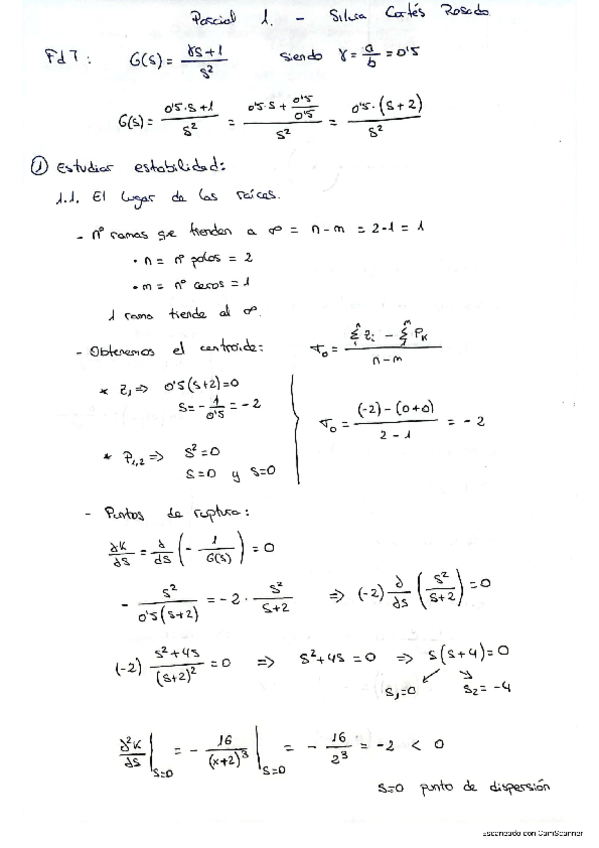 Parcial 1. - Silvia Cortés Rosado
FdT: G(s) = γs+1 / s² siendo γ = a/b = 0'5
G(s) = 0'5·s+1 / s² = 0'5·s + 0'5/0'5 / s² = 0'5·(s+2) / s²
① Estudiar estabilidad:
1.1. El lugar de las raíces.
- nº ramas que tienden a ∞ = n-m = 2-1 = 1
• n = nº polos = 2
• m = nº ceros = 1
1 rama tiende al ∞.
- Obtenemos el centroide: σ₀ = Σzᵢ - Σpₖ / n-m
* z₁ => 0'5(s+2)=0
s = - 1/0'5 = -2
σ₀ = (-2)-(0+0) / 2-1 = -2
* P₁,₂ => s²=0
s=0 y s=0
- Puntos de ruptura:
∂K/∂s = ∂/∂s (- 1/G(s)) = 0
- s² / 0'5(s+2) = -2 · s² / s+2 => (-2) ∂/∂s (s² / s+2) = 0
(-2) s²+4s / (s+2)² = 0 => s²+4s = 0 => s(s+4)=0
s₁=0 s₂=-4
∂²K/∂s |s=0 = - 16/(x+2)³ |s=0 = - 16/2³ = -2 < 0
s=0 punto de dispersión
Escaneado con CamScanner